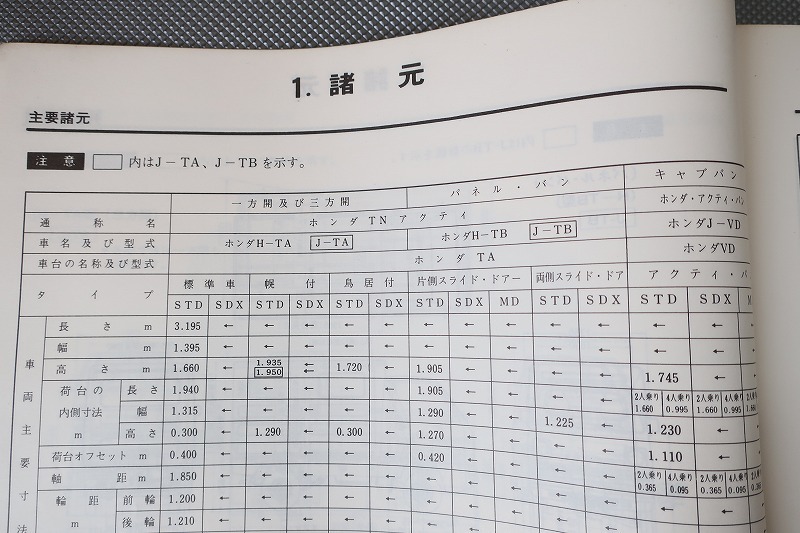 1. 諸元
主要諸元
注意 内はJ－TA、J－TBを示す。
一方開及び三方開 パネル・バン キャブバン
通称名 ホンダTNアクティ ホンダ・アクティ・バン
車名及び型式 ホンダH－TA J－TA ホンダH－TB J－TB ホンダJ－VD
車台の名称及び型式 ホンダTA ホンダVD
タイプ 標準車 幌付 鳥居付 片側スライド・ドアー 両側スライド・ドア アクティ・バ
STD SDX STD SDX STD SDX STD SDX MD STD SDX STD SDX M
車両主要寸法
長さ m 3.195 ← ← ← ← ← ← ← ← ← ← ← ← ←
幅 m 1.395 ← ← ← ← ← ← ← ← ← ← ← ← ←
高さ m 1.660 ← 1.935 1.950 ← ← 1.720 ← 1.905 ← ← ← ← 1.745 ← ←
荷台の内側寸法 m
長さ 1.940 ← ← ← ← ← 1.905 ← ← ← ← 2人乗り 1.660 4人乗り 0.995 2人乗り 1.660 4人乗り 0.995 2人乗り 1.660
幅 1.315 ← ← ← ← ← 1.290 ← ← 1.225 ← 1.230 ← ←
高さ 0.300 ← 1.290 ← 0.300 ← 1.270 ← ← ← ← 1.110 ← ←
荷台オフセット m 0.400 ← ← ← ← ← 0.420 ← ← ← ← 2人乗り 0.365 4人乗り 0.095 2人乗り 0.365 4人乗り 0.095 2人乗り 0.365
軸距 m 1.850 ← ← ← ← ← ← ← ← ← ← ← ← ←
輪距 m
前輪 1.200 ← ← ← ← ← ← ← ← ← ← ← ←
後輪 1.210 ← ← ← ← ← ← ← ← ← ←